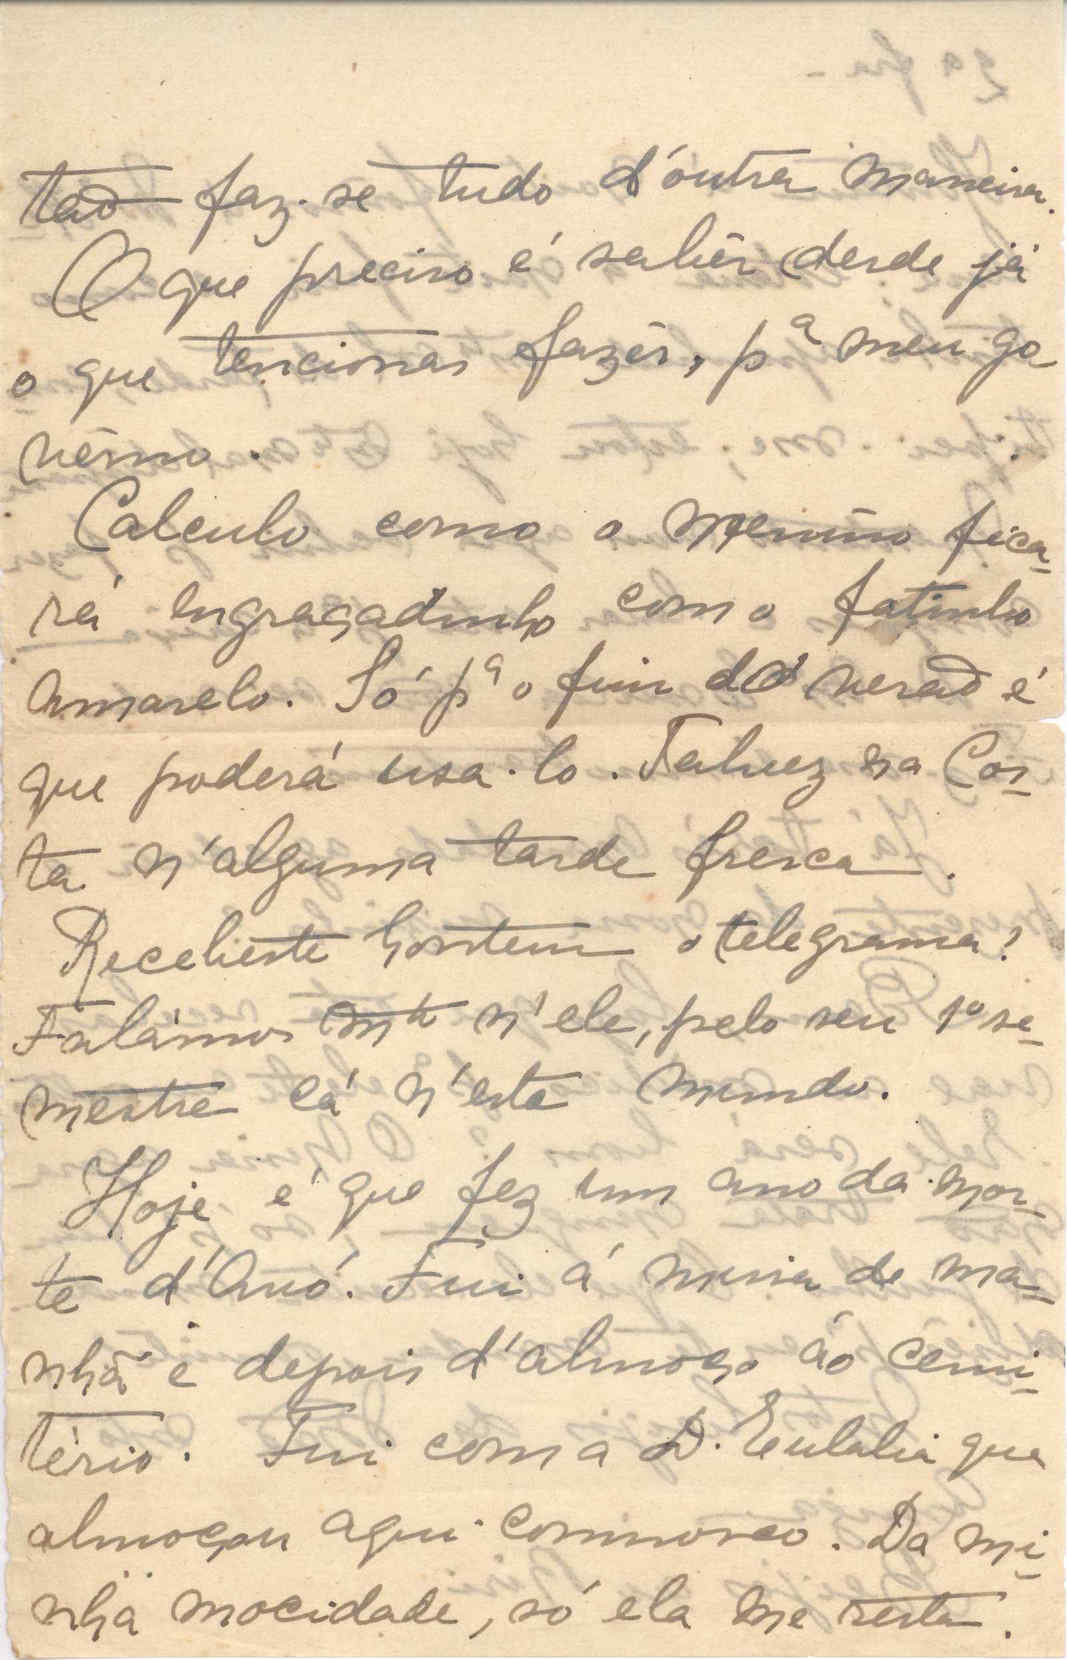 tão faz-se tudo d'outra maneira.
O que preciso é sabêr desde já
o que tencionas fazêr, pª meu go
vêrno.
Calculo como o menino fica-
rá engraçadinho com o fatinho
amarelo. Só pª o fim do verão é
que poderá usa-lo. Talvez na Cos-
ta n'alguma tarde fresca.
Recebeste hontem o telegrama?
Falámos mto n'ele, pelo seu 1º se-
mestre cá n'este mundo.
Hoje é que fez um ano da mor-
te d'Avó. Fui á missa de ma-
nhã e depois d'almoço ao cemi-
tério. Fui com a D. Eulalia que
almoçou aqui commosco. Da mi-
nha mocidade, só ela me resta.